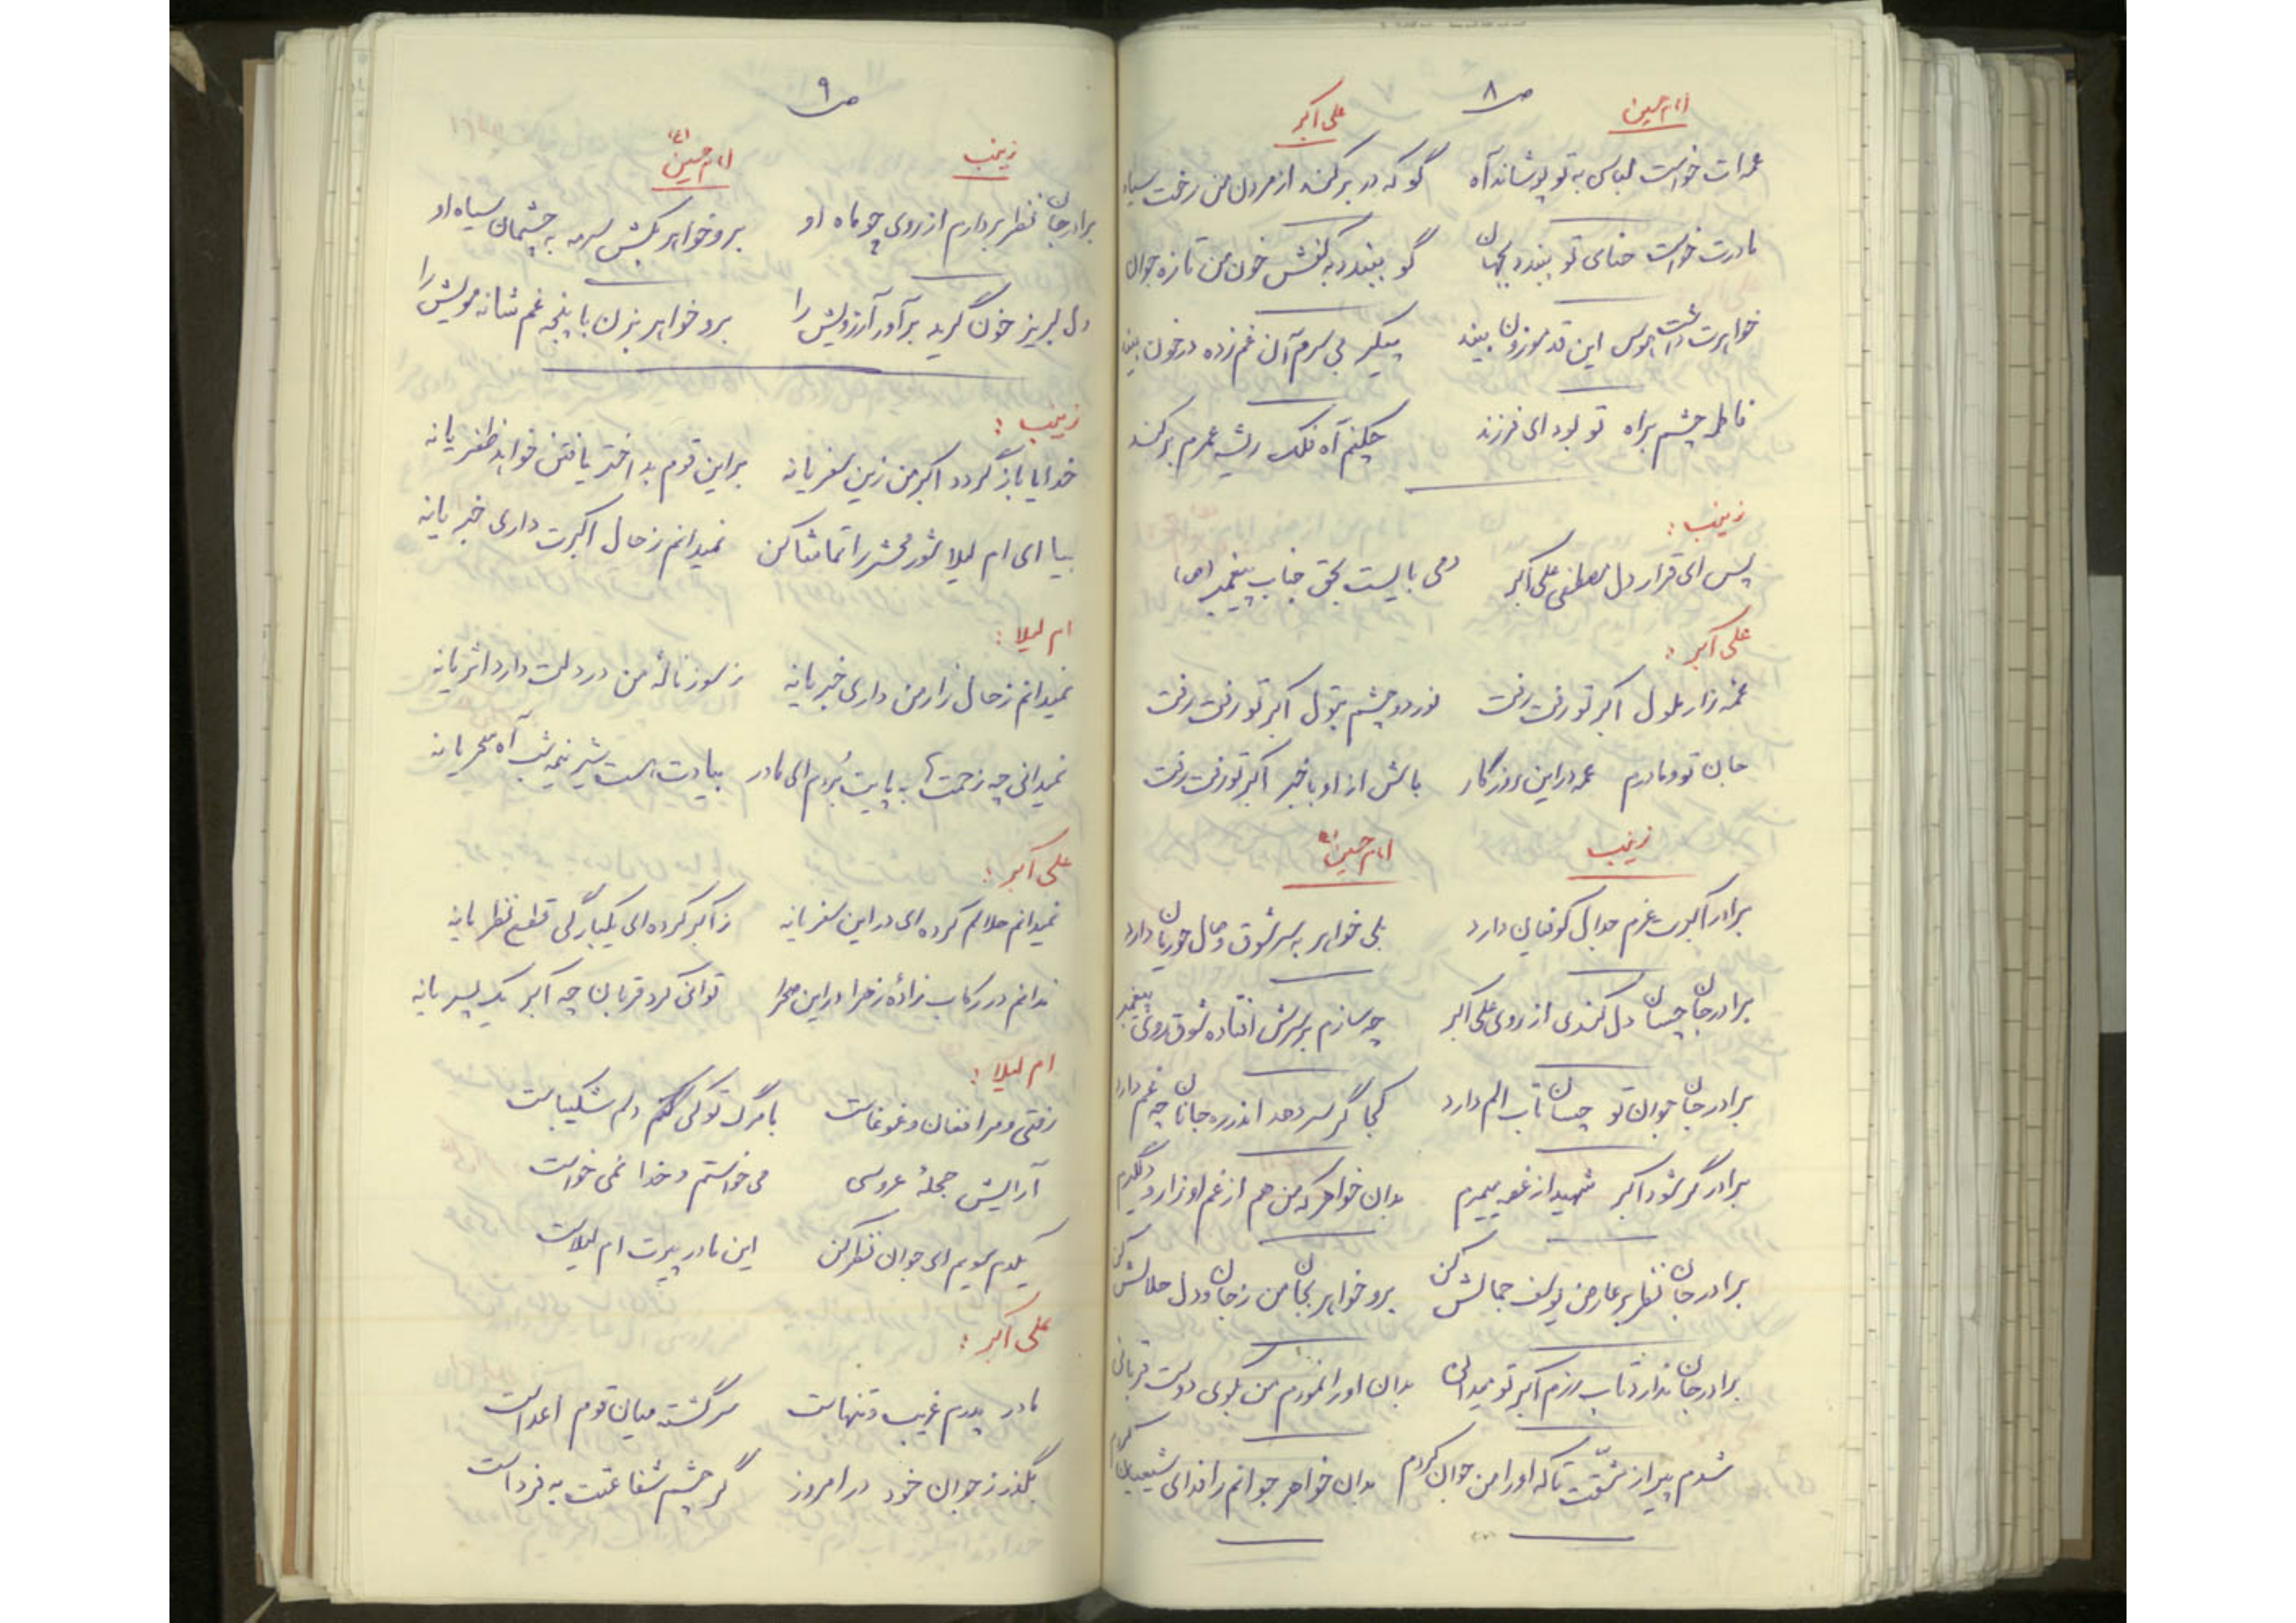 ص ۸
امام حسین علی اکبر
عمه‌ات خواست لباسی به تو پوشاند آه گو که در بر کند از مردن من رخت سیاه
مادرت خواست حنای تو ببندد بجهان گو ببندد به کفش خون من تازه جوان
خواهرت داشت هوس این قد موزون بیند پیکر بی سرم آن غم زده در خون بیند
فاطمه چشم براه تو بود ای فرزند چکنم آه فلک ریشه عمرم بر کند
زینب :
پس ای قرار دل مصطفی علی اکبر دمی بایست بحق جناب پیغمبر (ص)
علی اکبر :
عمه زار ملول اکبر تو رفت رفت نور دو چشم بتول اکبر تو رفت رفت
جان تو و مادرم عمه در این روزگار باش از او باخبر اکبر تو رفت رفت
زینب امام حسین
برادر اکبرت عزم جدال کوفیان دارد بلی خواهر به سر شوق وصال حوریان دارد
برادر جان چسان دل کندی از روی علی اکبر چه سازم بر سرش افتاده شوق روی پیغمبر
برادر جان جوان تو چسان تاب الم دارد کجا گر سر دهد اندر ره جانان چه غم دارد
برادر گر شود اکبر شهید از غصه میمیرم بدان خواهر که من هم از غم او زار و دلگیرم
برادر جان نظر بر عارض یوسف جمالش کن برو خواهر بجان من ز جان و دل حلالش کن
برادر جان ندارد تاب رزم اکبر تو میدانی بدان او را نمودم من بکوی دوست قربانی
شدم پیر از مشقت تا که او را من جوان کردم بدان خواهر جوانم را فدای شیعیان کردم
ص ۹
زینب امام حسین (ع)
برادر جان نظر بردارم از روی چو ماه او برو خواهر بکش سرمه به چشمان سیاه او
دل لبریز خون گرید برآور آرزویش را برو خواهر بزن با پنجه غم شانه مویش را
زینب :
خدایا باز گردد اکبر من زین سفر یا نه بر این قوم بد اختر یافتن خواهد ظفر یا نه
بیا ای ام لیلا شور محشر را تماشا کن نمیدانم ز حال اکبرت داری خبر یا نه
ام لیلا :
نمیدانم ز حال زار من داری خبر یا نه ز سوز نالهٔ من در دلت دارد اثر یا نه
نمیدانی چه زحمتها به پایت بُردم ای مادر بیادت هست شیر نیمه شب آه سحر یا نه
علی اکبر :
نمیدانم حلالم کرده‌ای در این سفر یا نه ز اکبر کرده‌ای یکبارگی قطع نظر یا نه
ندانم در رکاب زادهٔ زهرا در این صحرا توانی کرد قربان چه اکبر یک پسر یا نه
ام لیلا :
رفتی و مرا فغان و غوغاست با مرگ تو کی کنم دلم شکیباست
آرایش حجلهٔ عروسی می خواستم و خدا نمی خواست
یکدم بسویم ای جوان نظر کن این مادر پیرت ام لیلاست
علی اکبر :
مادر پدرم غریب و تنهاست سرگشته میان قوم اعداست
بگذر ز جوان خود در امروز گر چشم شفاعتت به فرداست